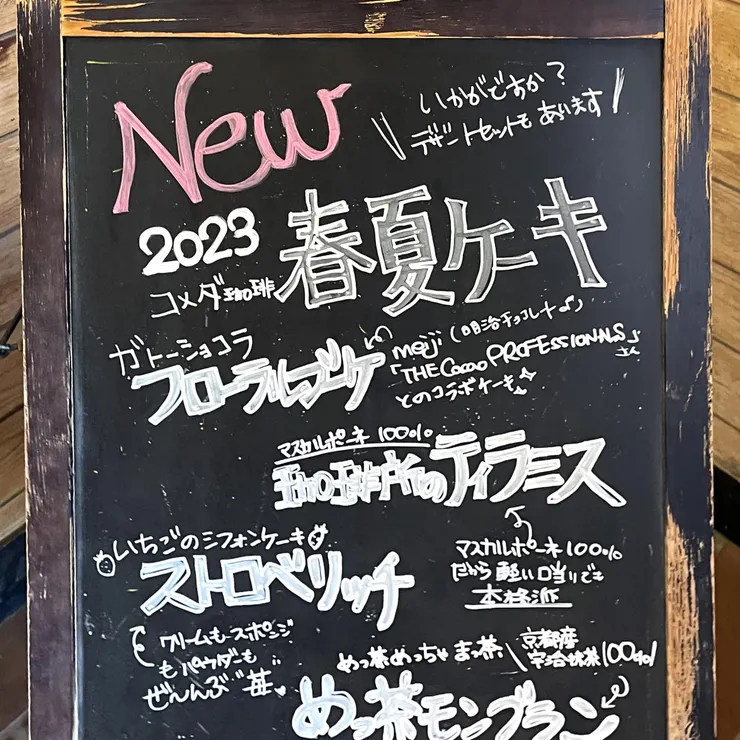 New
いかがですか?
デザートセットもあります
2023
春夏ケーキ
コメダ珈琲
ガトーショコラ
フローラルブーケ
meiji(明治チョコレート)
「THE Cacao PROFESSIONALS」さん
とのコラボケーキ
マスカルポーネ100%
珈琲所のティラミス
いちごのシフォンケーキ
ストロベリッチ
マスカルポーネ100%
だから軽い口当りでも
本格派
クリームもスポンジ
もパウダーも
ぜ〜んぶ苺
めっ茶めっちゃまっ茶
京都産
宇治抹茶100%
めっ茶モンブラン